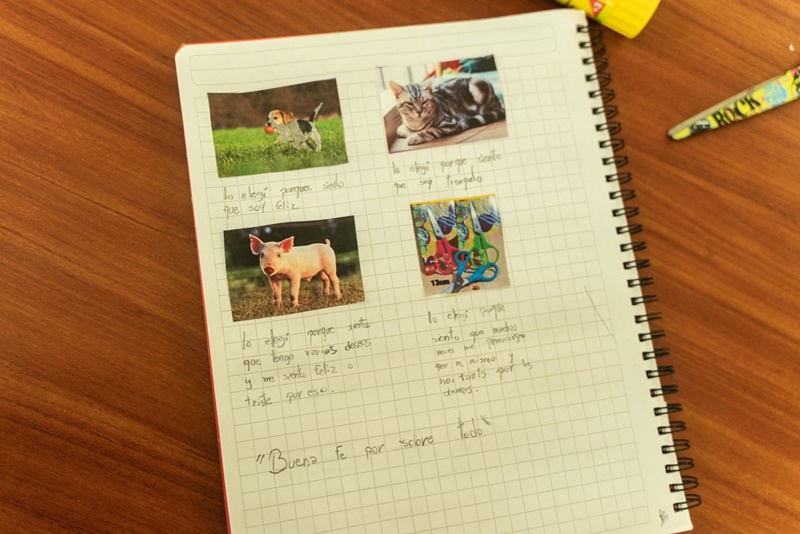 lo elegi porque siento
que soy feliz
lo elegi porque siento
que soy tranquilo
lo elegi porque siento
que tengo varios deseos
y me siento feliz o
triste por eso.
13cm
lo elegi porque
siento que muchas
veces me preocupo
por mi mismo y
no tanto por los
demas.
"Buena fe por sobre todo"
ROCK